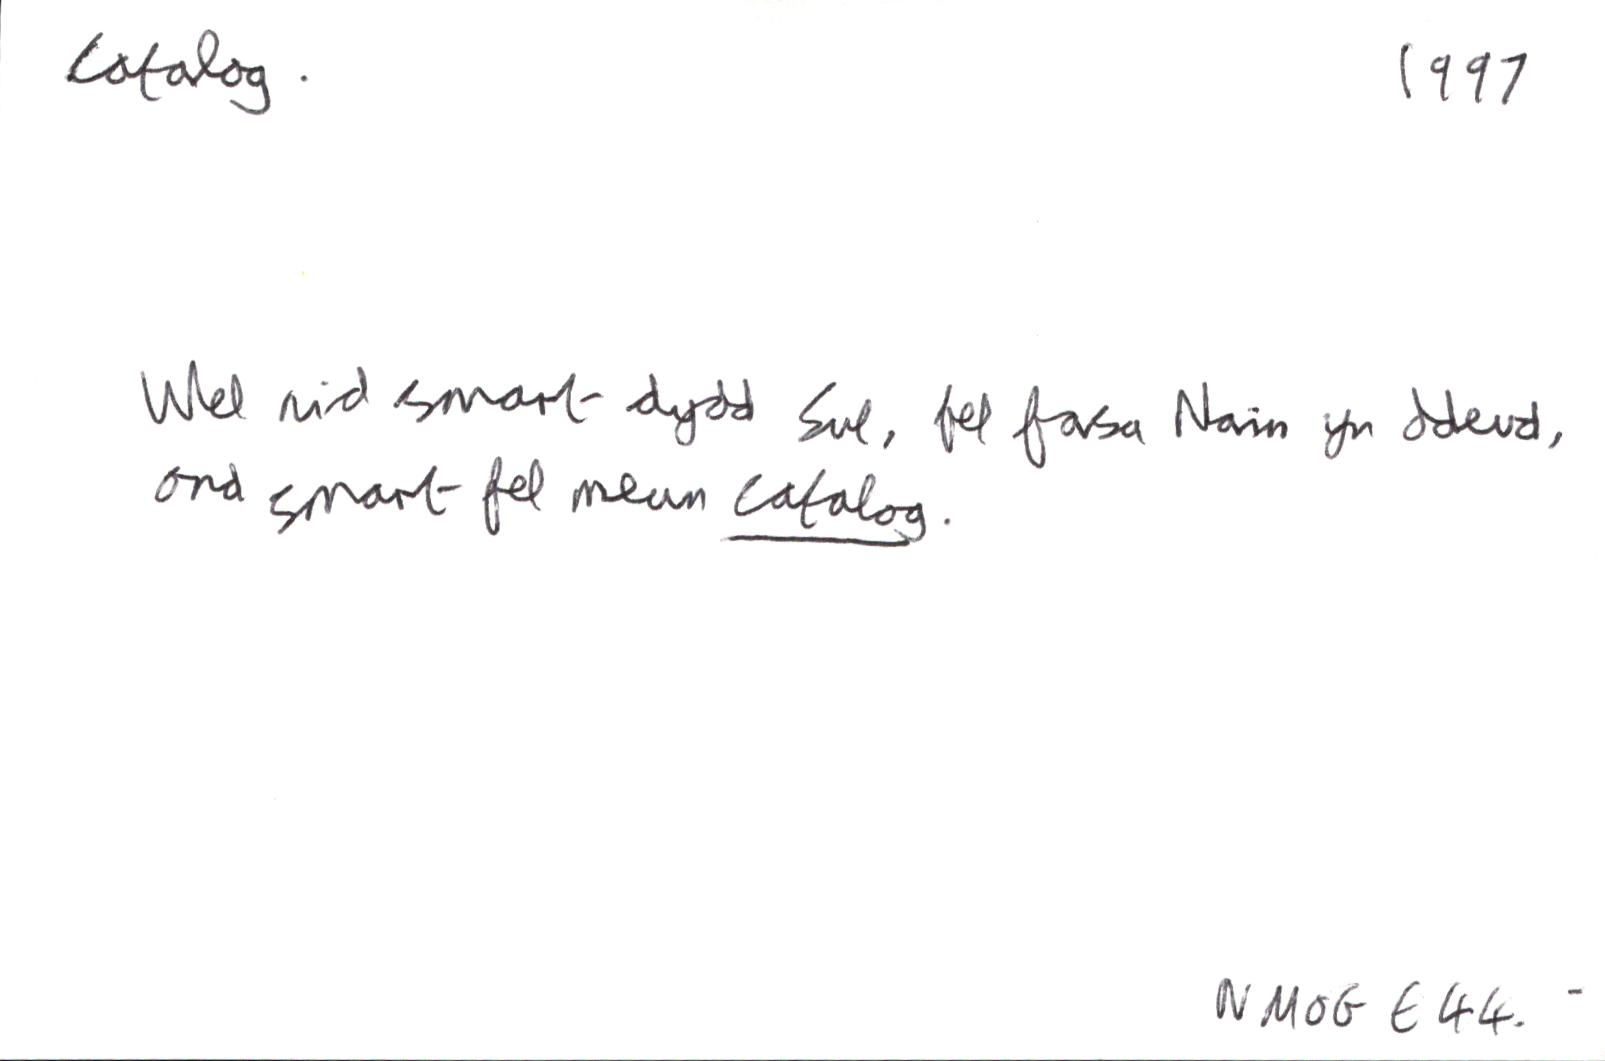 Catalog. 1997
Wel nid smart dydd Sul, fel fasa Nain yn ddeud,
ond smart fel mewn catalog.
N MOG E 44.